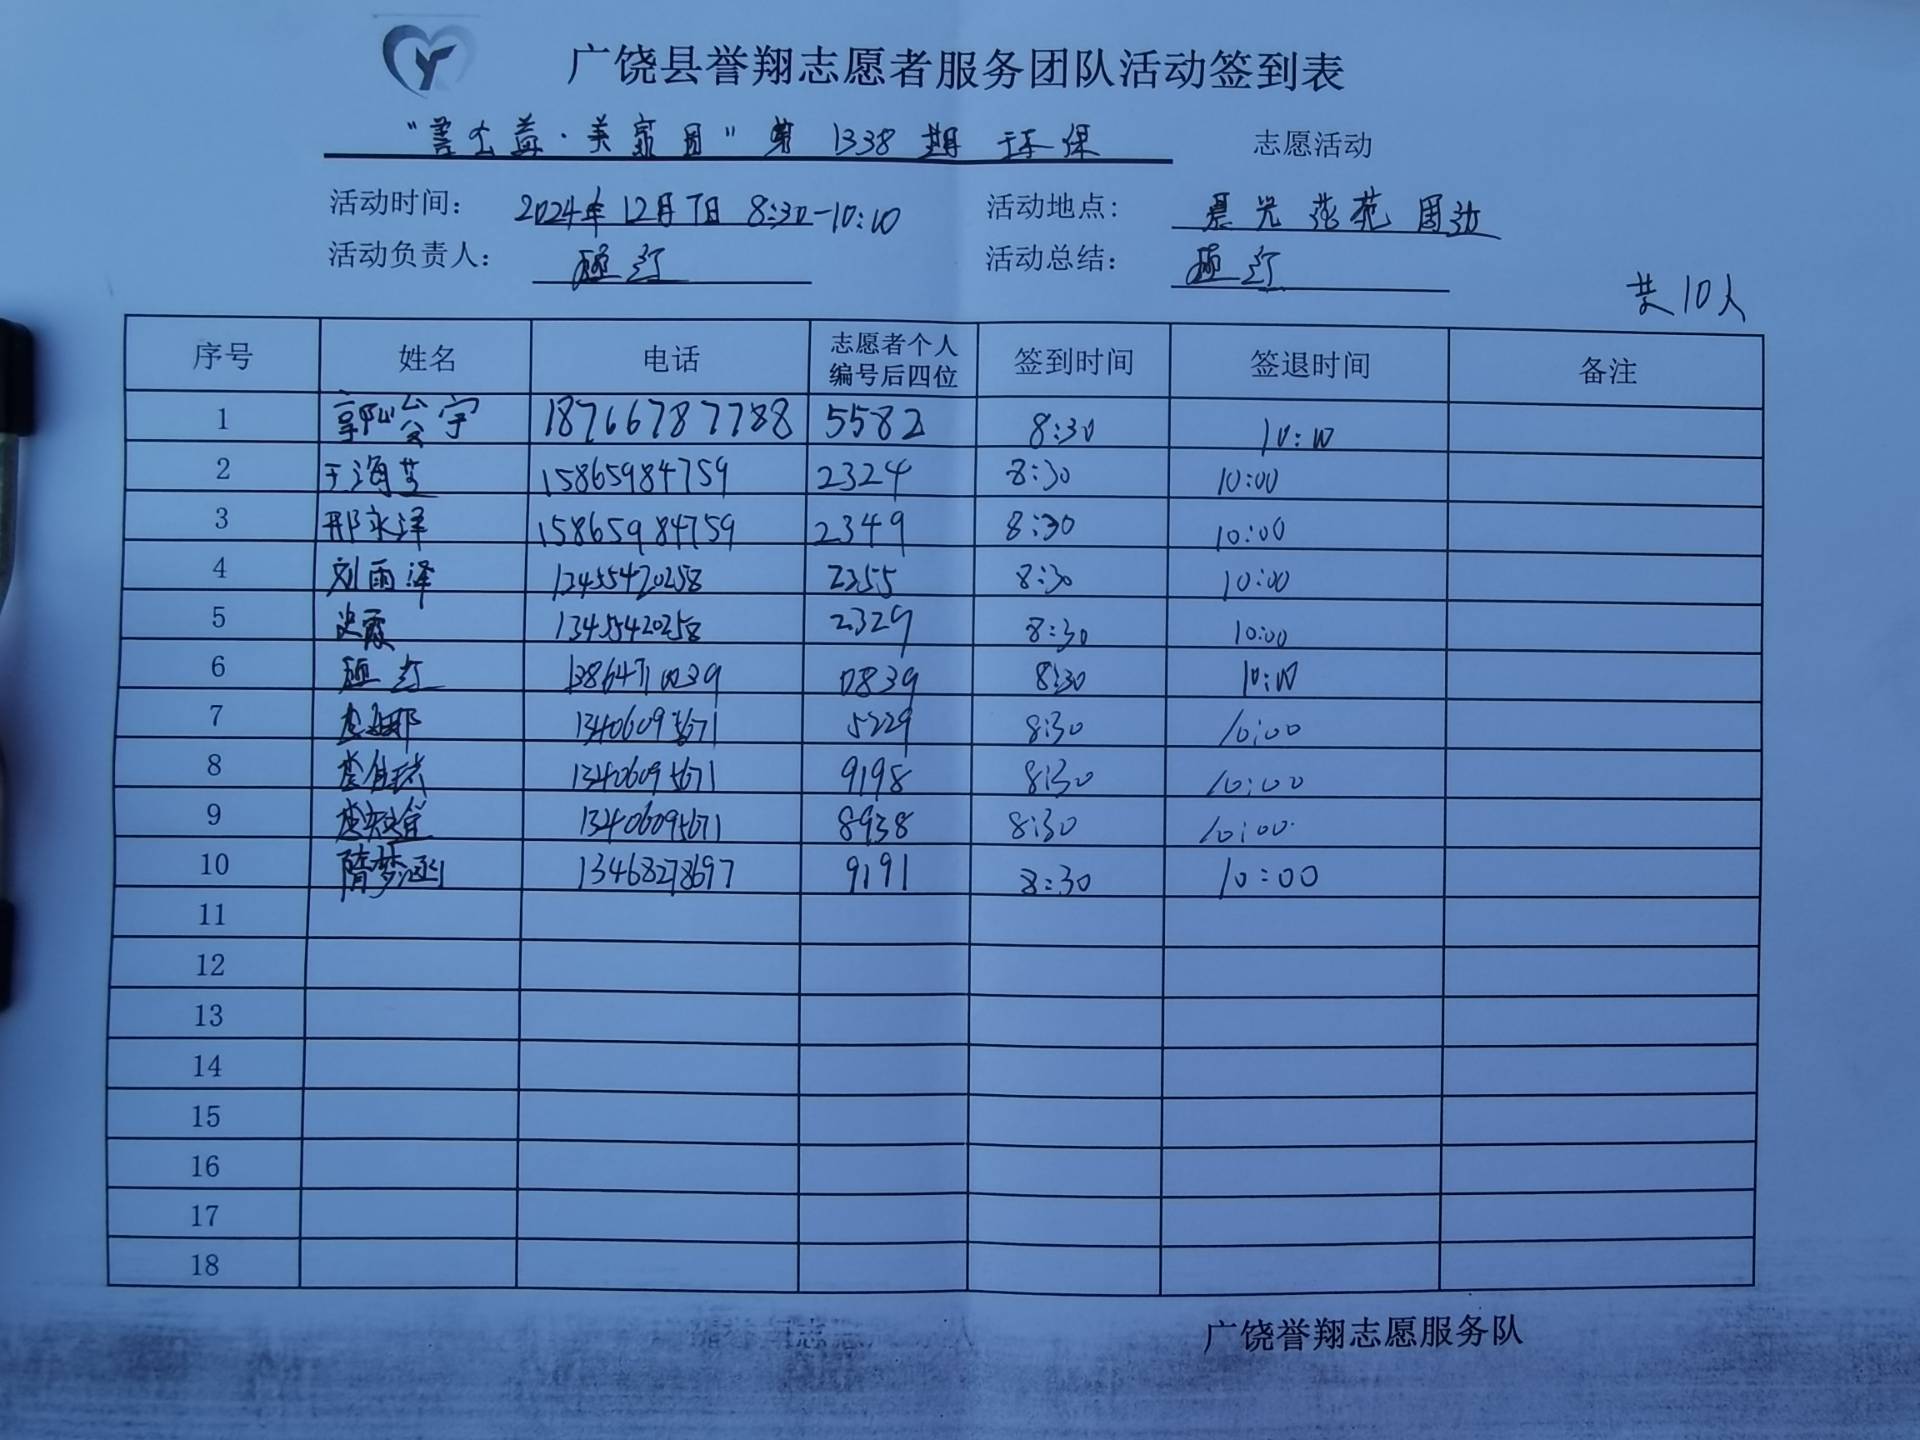 广饶县誉翔志愿者服务团队活动签到表
"善公益·美家园"第1338期 环保 志愿活动
活动时间: 2024年12月7日 8:30-10:00 活动地点: 周边
活动负责人: 活动总结:
共10人
序号 姓名 电话 志愿者个人编号后四位 签到时间 签退时间 备注
1 18766787788 5582 8:30 10:00
2 王海芝 15865984759 2324 8:30 10:00
3 邢永泽 15865984759 2349 8:30 10:00
4 刘雨泽 13455420258 2355 8:30 10:00
5 史霞 13455420258 2329 8:30 10:00
6 13864710039 0839 8:30 10:00
7 13406095671 5229 8:30 10:00
8 13406095671 9198 8:30 10:00
9 13406095671 8938 8:30 10:00
10 隋梦涵 13468278697 9191 8:30 10:00
11
12
13
14
15
16
17
18
广饶誉翔志愿服务队